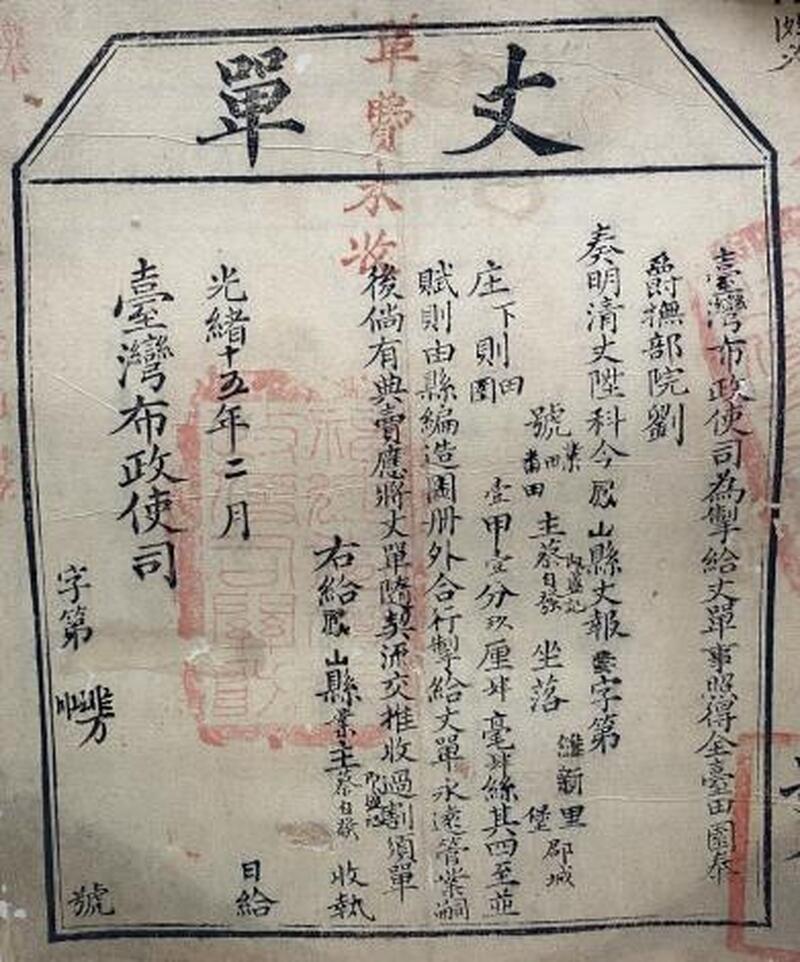 丈單
單費未收
臺灣布政使司為掣給丈單事照得全臺田園奉
爵撫部院劉
奏明清丈陞科今鳳山縣丈報字第
號業田主蔡自發坐落維新里堡郡城
庄下則田園壹甲壹分玖厘肆毫肆絲其四至並
賦則由縣編造圖冊外合行掣給丈單永遠管業嗣
後倘有典賣應將丈單隨契流交推收過割須單
右給鳳山縣業主蔡自發收執
光緒十五年二月日給
臺灣布政使司
字第號